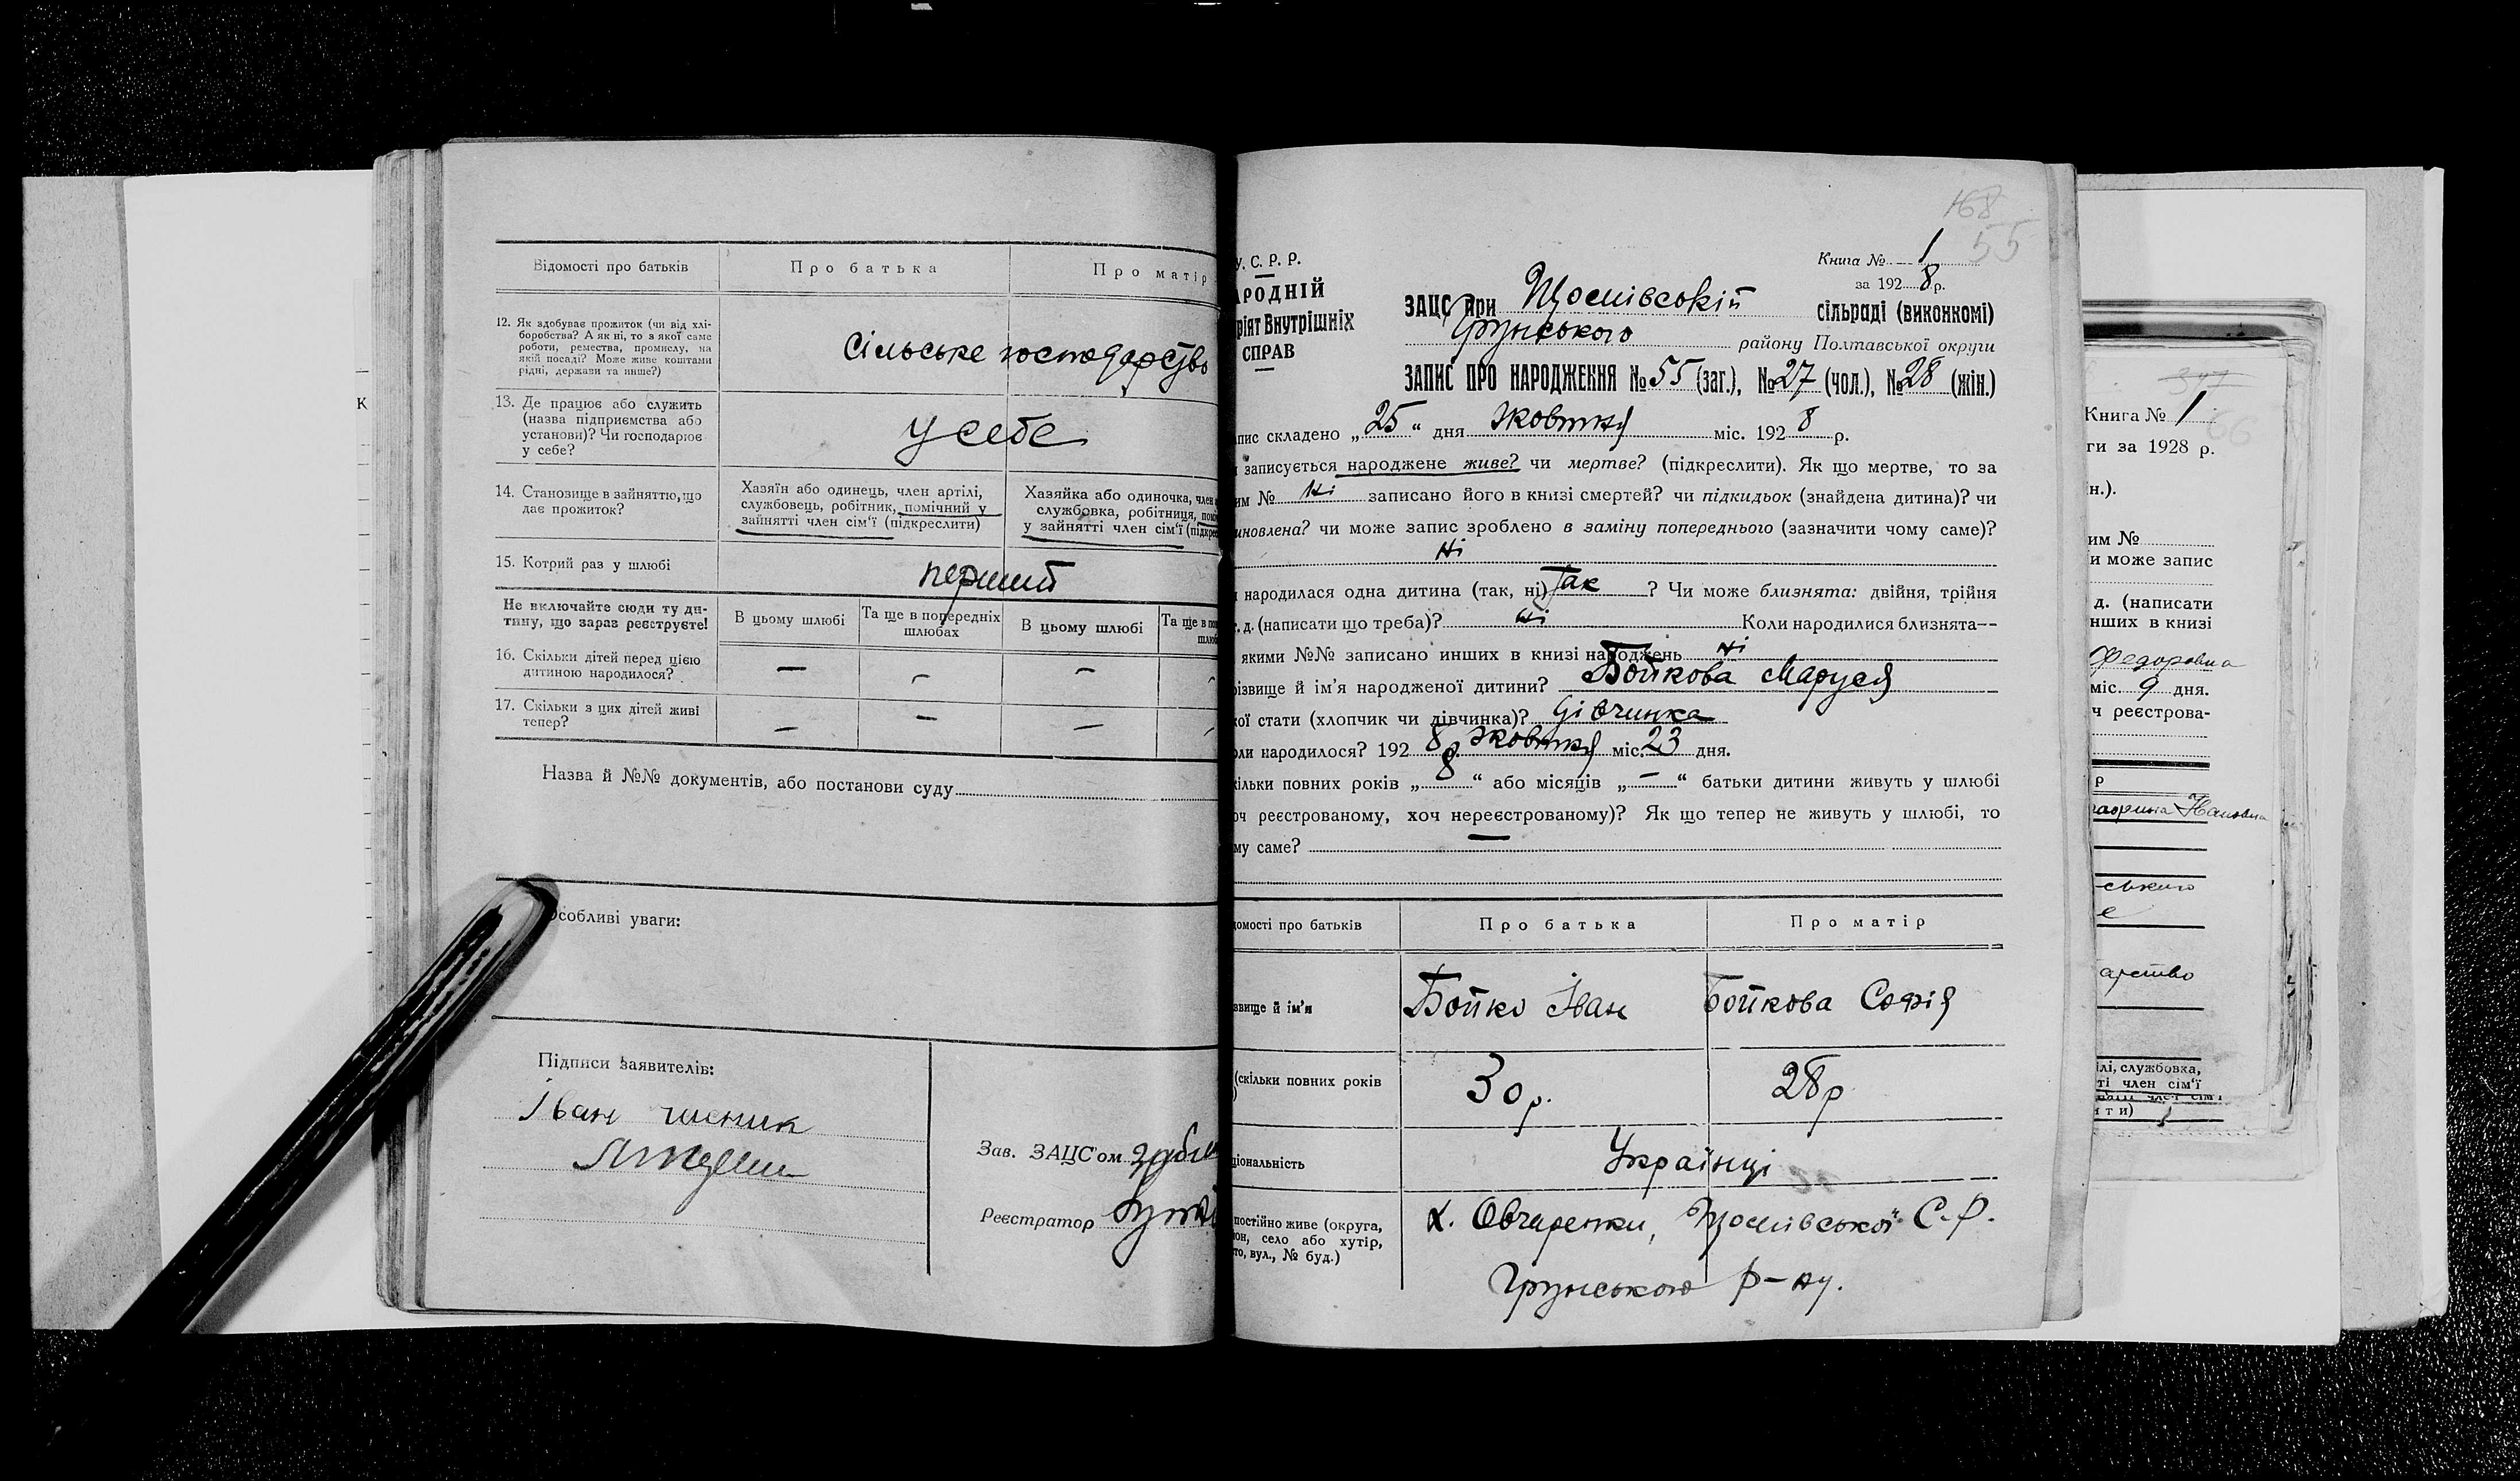 Відомості про батьків
Про батька
Про матір
12. Як здобуває прожиток (чи від хлі-
боробства? А як ні, то з якої саме
роботи, ремества, промислу, на
якій посаді? Може живе коштами
рідні, держави та инше?)
Сільське господарство
13. Де працює або служить
(назва підприємства або
установи)? Чи господарює
у себе?
У себе
14. Становище в зайняттю, що
дає прожиток?
Хазяїн або одинець, член артілі,
службовець, робітник, помічний у
зайнятті член сім'ї (підкреслити)
Хазяйка або одиночка, член
службовка, робітниця,
у зайнятті член сім'ї
15. Котрий раз у шлюбі
перший
Не включайте сюди ту ди-
тину, що зараз реєструєте!
В цьому шлюбі
Та ще в попередніх
шлюбах
В цьому шлюбі
Та ще в
16. Скільки дітей перед цією
дитиною народилося?
— — —
17. Скільки з цих дітей живі
тепер?
— — —
Назва й №№ документів, або постанови суду
Особливі уваги:
Підписи заявителів:
Іван
Зав. ЗАЦС'ом
Реєстратор
168
55
У. С. Р. Р.
АРОДНІЙ
ріят Внутрішніх
СПРАВ
Книга № 1
за 1928 р.
ЗАЦС при сільраді (виконкомі)
Грунського району Полтавської округи
ЗАПИС ПРО НАРОДЖЕННЯ № 55 (заг.), № 27 (чол.), № 28 (жін.)
пис складено „25“ дня Жовтня міс. 1928 р.
записується народжене живе? чи мертве? (підкреслити). Як що мертве, то за
им № Ні записано його в книзі смертей? чи підкидьок (знайдена дитина)? чи
иновлена? чи може запис зроблено в заміну попереднього (зазначити чому саме)?
Ні
народилася одна дитина (так, ні) Так ? Чи може близнята: двійня, трійня
т. д. (написати що треба)? Ні Коли народилися близнята—
якими №№ записано инших в книзі народжень Ні
різвище й ім'я народженої дитини? Бойкова Маруся
кої стати (хлопчик чи дівчинка)? дівчинка
оли народилося? 1928 р. Жовтня міс. 23 дня.
кільки повних років „8“ або місяців „—“ батьки дитини живуть у шлюбі
оч реєстрованому, хоч нереєстрованому)? Як що тепер не живуть у шлюбі, то
му саме? —
домості про батьків
Про батька
Про матір
звище й ім'я
Бойко Іван
Бойкова Софія
(скільки повних років
30 р.
28 р
ціональність
Українці
постійно живе (округа,
он, село або хутір,
то, вул., № буд.)
х. Овчаренки, С.-Р.
Грунського р-ну.
Книга № 1
66
ги за 1928 р.
н.).
им №
и може запис
д. (написати
нших в книзі
Федоровна
міс. 9 дня.
ч реєстрова-
р
Ивановна
ського
е
арство
ілі, службовка,
ті член сім'ї